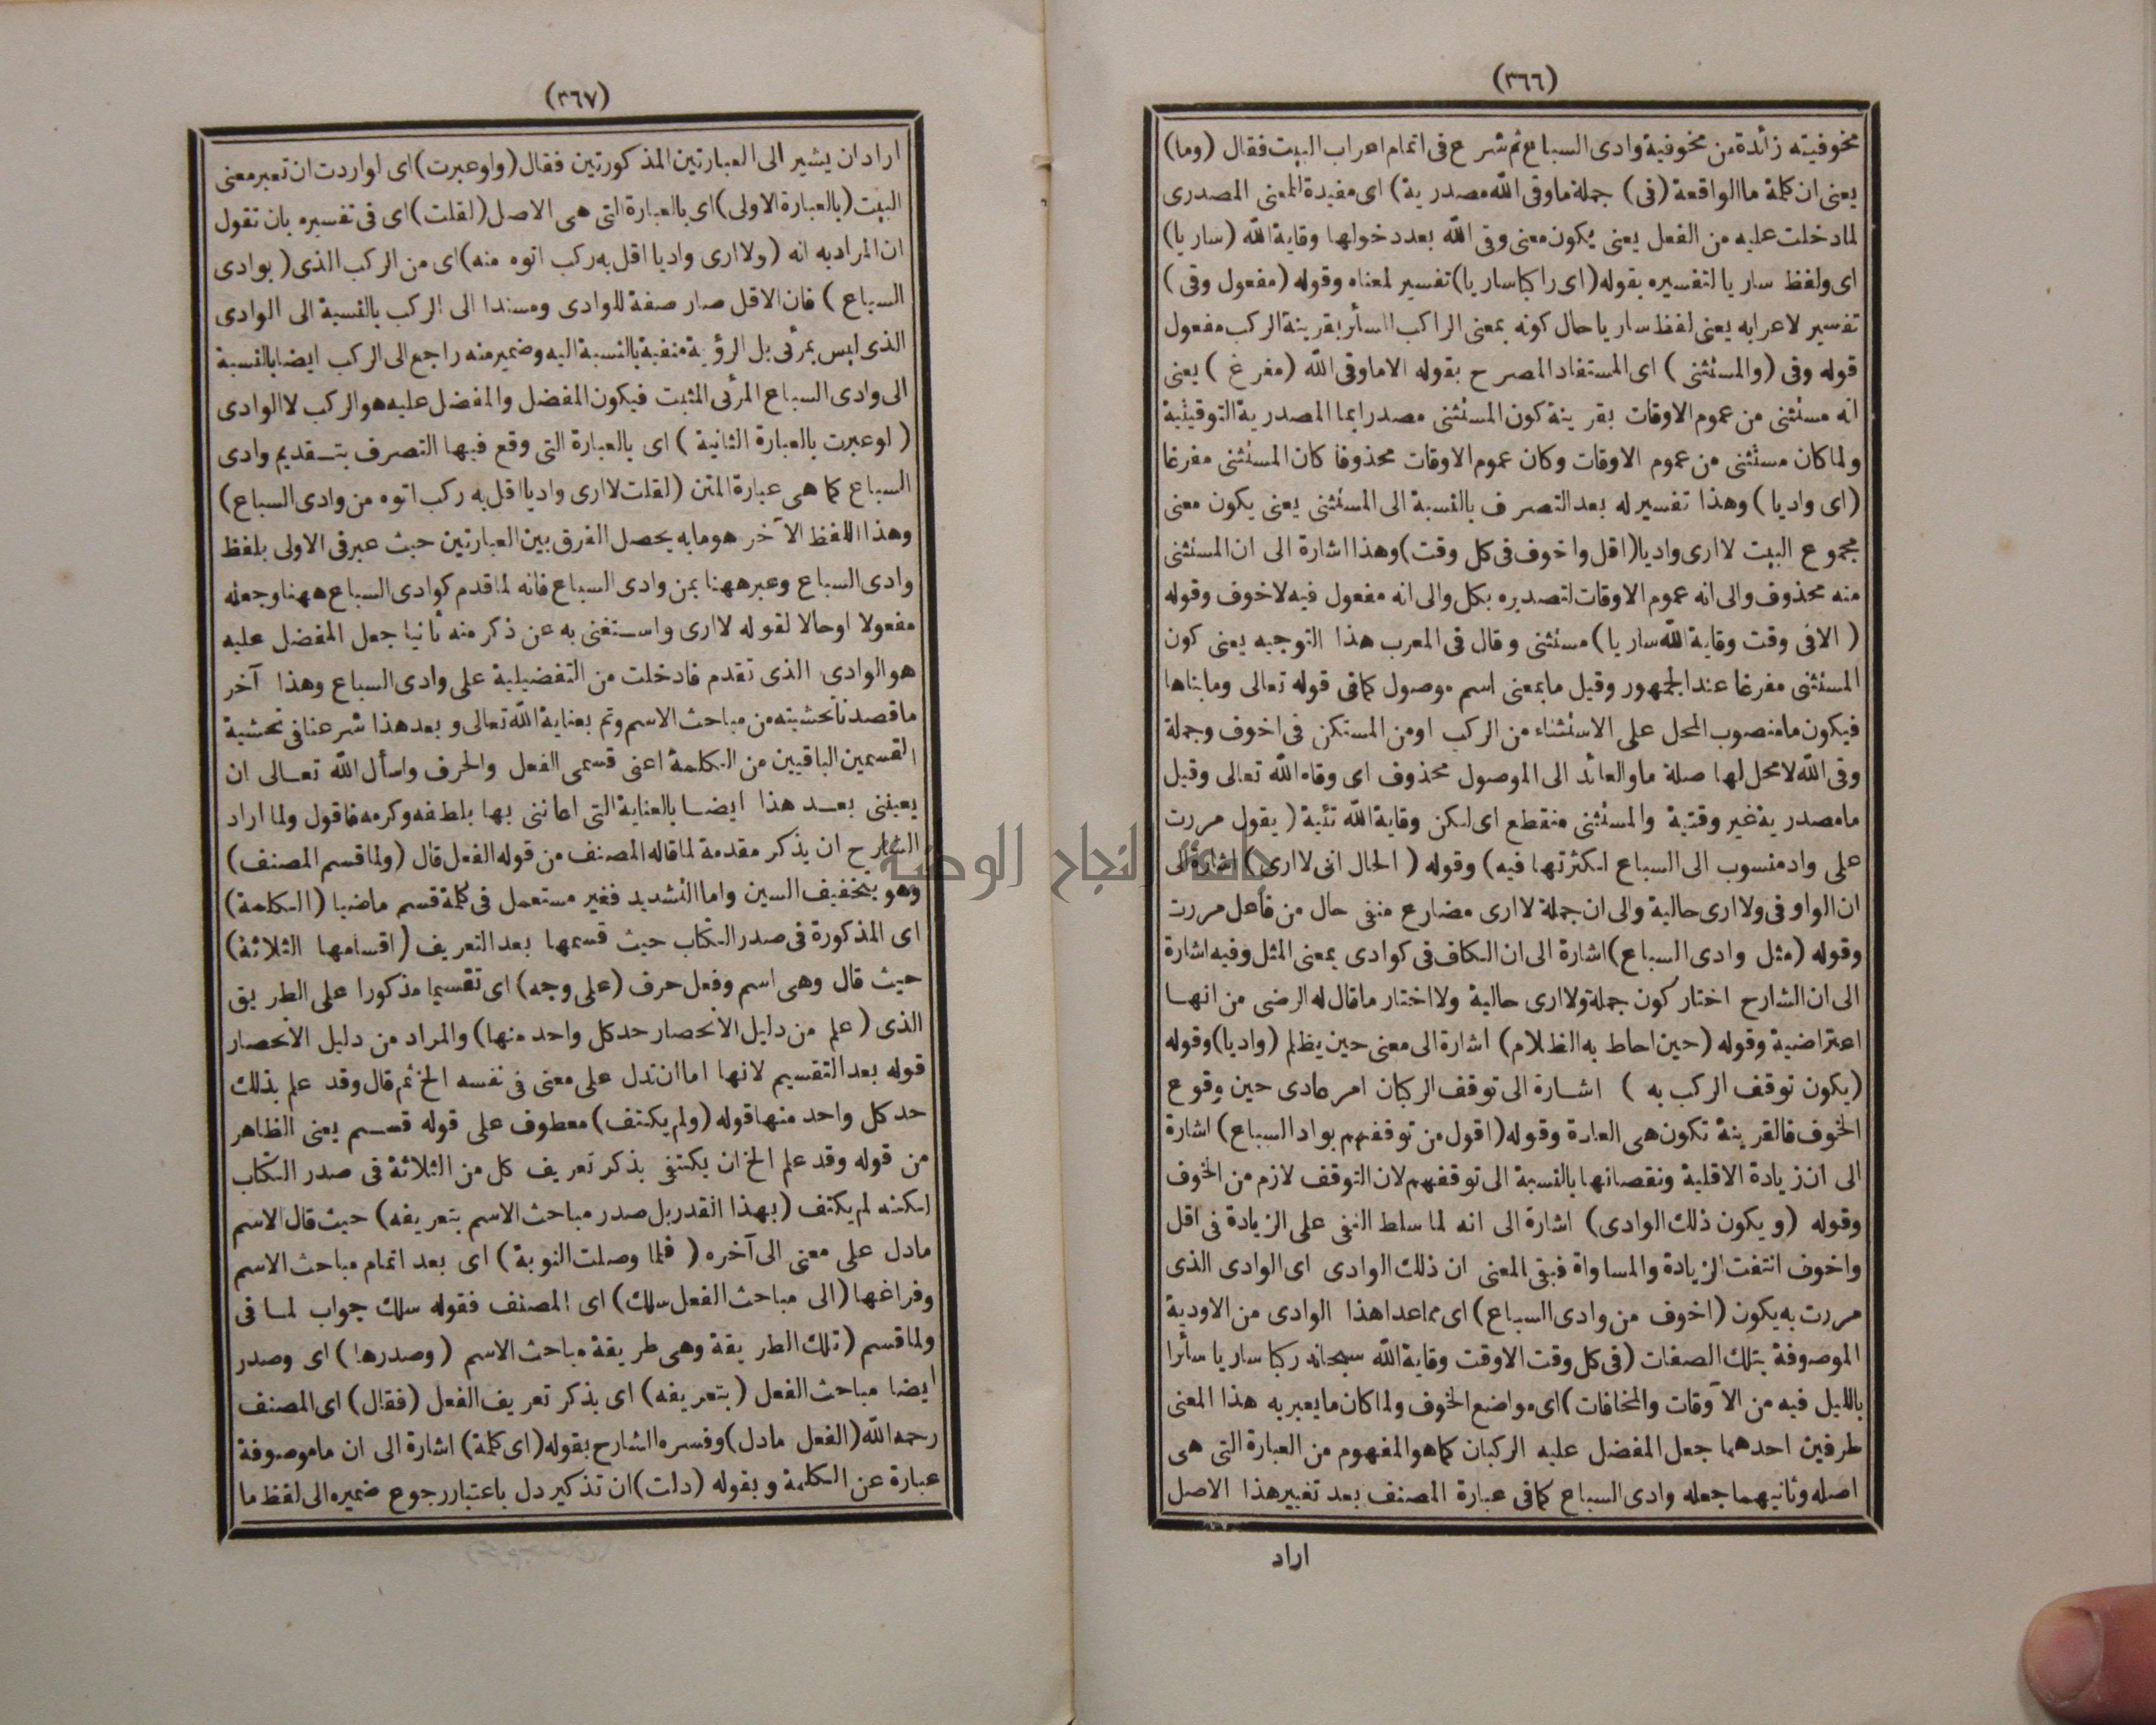 (٣٦٦)
مخوفيته زائدة من مخوفية وادى السباع ثم شرع فى اتمام اعراب البيت فقال (وما)
يعنى ان كلمة ما الواقعة (فى) جملة ما وقى الله مصدرية) اى مفيدة للمعنى المصدرى
لما دخلت عليه من الفعل يعنى يكون معنى وقى الله بعد دخولها وقاية الله (ساريا)
اى ولفظ ساريا لتفسيره بقوله (اى راكبا ساريا) تفسير لمعناه وقوله (مفعول وقى)
تفسير لاعرابه يعنى لفظ ساريا حال كونه بمعنى الراكب السائر بقرينة الركب مفعول
قوله وقى (والمستثنى) اى المستفاد المصرح بقوله الاما وقى الله (مفرغ) يعنى
انه مستثنى من عموم الاوقات بقرينة كون المستثنى مصدرا بما المصدرية التوقيتية
ولما كان مستثنى من عموم الاوقات وكان عموم الاوقات محذوفا كان المستثنى مفرغا
(اى واديا) وهذا تفسير له بعد التصرف بالنسبة الى المستثنى يعنى يكون معنى
مجموع البيت لا ارى واديا (اقل واخوف فى كل وقت) وهذا اشارة الى ان المستثنى
منه محذوف والى انه عموم الاوقات لتصديره بكل والى انه مفعول فيه لاخوف وقوله
(الا فى وقت وقاية الله ساريا) مستثنى وقال فى المعرب هذا التوجيه يعنى كون
المستثنى مفرغا عند الجمهور وقيل ما بمعنى اسم موصول كما فى قوله تعالى وما بناها
فيكون ما منصوب المحل على الاستثناء من الركب او من المستكن فى اخوف وجملة
وقى الله لا محل لها صلة ما والعائد الى الموصول محذوف اى وقاه الله تعالى وقيل
ما مصدرية غير وقتية والمستثنى منقطع اى لكن وقاية الله تئية (يقول مررت
على واد منسوب الى السباع لكثرتها فيه) وقوله (الحال انى لا ارى) اشارة الى
ان الواو فى ولا ارى حالية والى ان جملة لا ارى مضارع منفى حال من فاعل مررت
وقوله (مثل وادى السباع) اشارة الى ان الكاف فى كوادى بمعنى المثل وفيه اشارة
الى ان الشارح اختار كون جملة ولا ارى حالية ولا اختار ما قال له الرضى من انها
اعتراضية وقوله (حين احاط به الظلام) اشارة الى معنى حين يظلم (واديا) وقوله
(يكون توقف الركب به) اشارة الى توقف الركبان امر عادى حين وقوع
الخوف فالقرينة تكون هى العادة وقوله (اقول من توقفهم بواد السباع) اشارة
الى ان زيادة الاقلية ونقصانها بالنسبة الى توقفهم لان التوقف لازم من الخوف
وقوله (ويكون ذلك الوادى) اشارة الى انه لما سلط النفى على الزيادة فى اقل
واخوف انتفت الزيادة والمساواة فبقى المعنى ان ذلك الوادى اى الوادى الذى
مررت به يكون (اخوف من وادى السباع) اى مما عدا هذا الوادى من الاودية
الموصوفة بتلك الصفات (فى كل وقت الا وقت وقاية الله سبحانه ركبا ساريا سائرا
بالليل فيه من الآوقات والمخافات) اى مواضع الخوف ولما كان ما يعبر به هذا المعنى
طرفين احدهما جعل المفضل عليه الركبان كما هو المفهوم من العبارة التى هى
اصله وثانيهما جعله وادى السباع كما فى عبارة المصنف بعد تغيير هذا الاصل
اراد
(٣٦٧)
اراد ان يشير الى العبارتين المذكورتين فقال (ولو عبرت) اى لو اردت ان تعبر معنى
البيت (بالعبارة الاولى) اى بالعبارة التى هى الاصل (لقلت) اى فى تفسيره بان تقول
ان المراد به انه (ولا ارى واديا اقل به ركب اتوه منه) اى من الركب الذى (بوادى
السباع) فان الاقل صار صفة للوادى ومسندا الى الركب بالنسبة الى الوادى
الذى ليس بمرئى بل الرؤية منفية بالنسبة اليه وضمير منه راجع الى الركب ايضا بالنسبة
الى وادى السباع المرئى المثبت فيكون المفضل والمفضل عليه هو الركب لا الوادى
(لو عبرت بالعبارة الثانية) اى بالعبارة التى وقع فيها التصرف بتقديم وادى
السباع كما هى عبارة المتن (لقلت لا ارى واديا اقل به ركب اتوه من وادى السباع)
وهذا اللفظ الآخر هو ما به يحصل الفرق بين العبارتين حيث عبر فى الاولى بلفظ
وادى السباع وعبر ههنا بمن وادى السباع فانه لما قدم كوادى السباع ههنا وجعله
مفعولا او حالا لقوله لا ارى واستغنى به عن ذكر منه ثانيا جعل المفضل عليه
هو الوادى الذى تقدم فادخلت من التفضيلية على وادى السباع وهذا آخر
ما قصدنا تحشيته من مباحث الاسم وتم بعناية الله تعالى وبعد هذا شرعنا فى تحشية
القسمين الباقيين من الكلمة اعنى قسمى الفعل والحرف واسأل الله تعالى ان
يعيننى بعد هذا ايضا بالعناية التى اعاننى بها بلطفه وكرمه فاقول ولما اراد
الشارح ان يذكر مقدمة لما قاله المصنف من قوله الفعل قال (ولما قسم المصنف)
وهو بتخفيف السين واما التشديد فغير مستعمل فى كلمة قسم ماضيا (الكلمة)
اى المذكورة فى صدر الكتاب حيث قسمها بعد التعريف (اقسامها الثلاثة)
حيث قال وهى اسم وفعل حرف (على وجه) اى تقسيما مذكورا على الطريق
الذى (علم من دليل الانحصار حد كل واحد منها) والمراد من دليل الانحصار
قوله بعد التقسيم لانها اما ان تدل على معنى فى نفسه الخ ثم قال وقد علم بذلك
حد كل واحد منها قوله (ولم يكتف) معطوف على قوله قسم يعنى الظاهر
من قوله وقد علم الخ ان يكتفى بذكر تعريف كل من الثلاثة فى صدر الكتاب
لكنه لم يكتف (بهذا القدر بل صدر مباحث الاسم بتعريفه) حيث قال الاسم
مادل على معنى الى آخره (فلما وصلت النوبة) اى بعد اتمام مباحث الاسم
وفراغها (الى مباحث الفعل سلك) اى المصنف فقوله سلك جواب لما فى
ولما قسم (تلك الطريقة وهى طريقة مباحث الاسم (وصدرها) اى وصدر
ايضا مباحث الفعل (بتعريفه) اى بذكر تعريف الفعل (فقال) اى المصنف
رحمه الله (الفعل مادل) وفسره الشارح بقوله (اى كلمة) اشارة الى ان ما موصوفة
عبارة عن الكلمة وبقوله (دلت) ان تذكير دل باعتبار رجوع ضميره الى لفظ ما
جامعة النجاح الوطنية